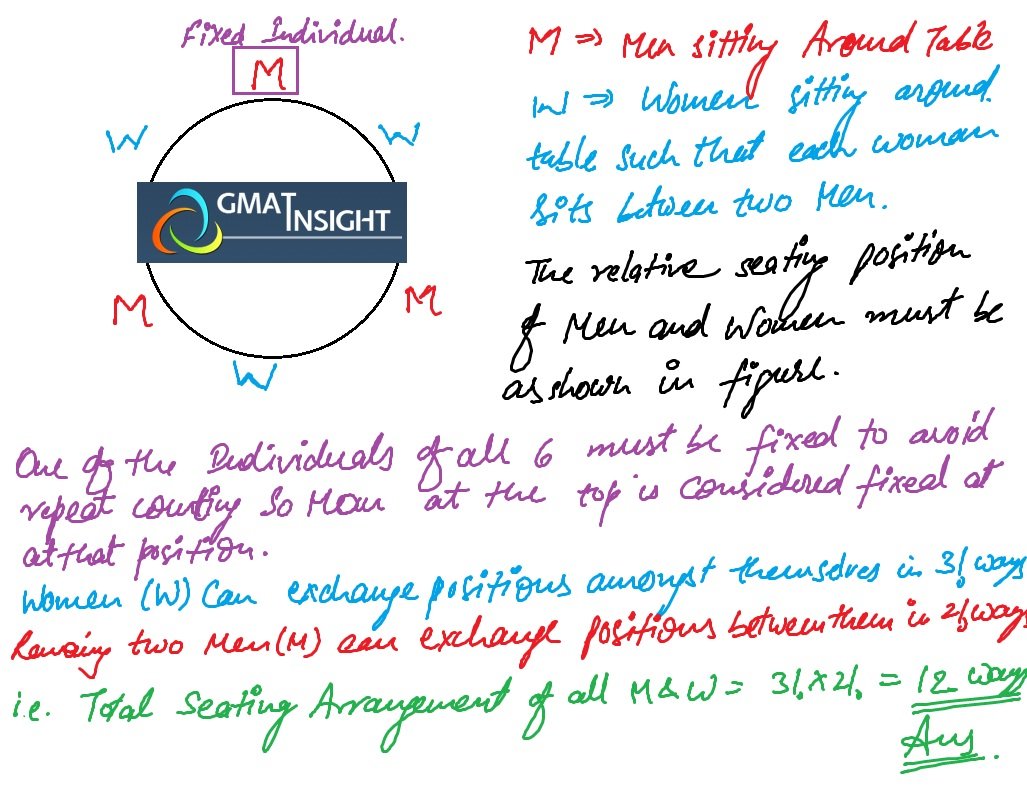 Fixed Individual.
M
W
W
GMAT INSIGHT
M
M
W
M => Men sitting Around Table
W => Women sitting around
table such that each woman
sits between two Men.
The relative seating position
of Men and Women must be
as shown in figure.
One of the Individuals of all 6 must be fixed to avoid
repeat counting so Man at the top is considered fixed at
at that position.
Women (W) Can exchange positions amongst themselves in 3! ways
two Men (M) can exchange positions between them in 2! ways
i.e. Total Seating Arrangement of all M & W = 3! x 2! = 12 ways
Ans.